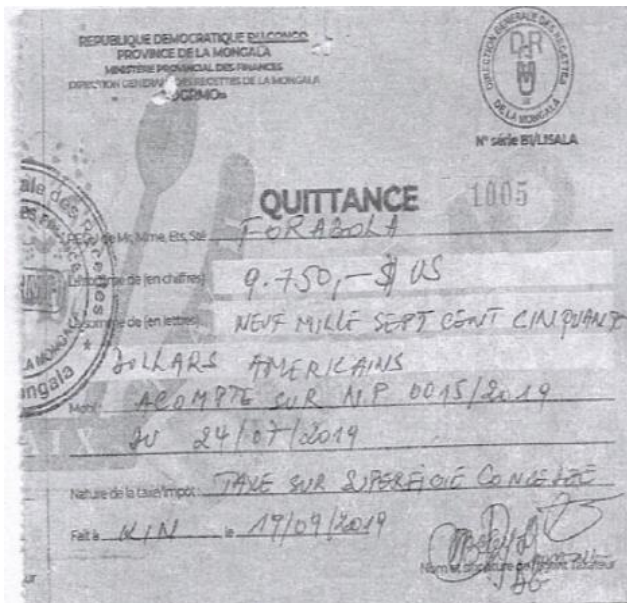 REPUBLIQUE DEMOCRATIQUE DU CONGO
PROVINCE DE LA MONGALA
MINISTERE PROVINCIAL DES FINANCES
DIRECTION GENERALE DES RECETTES DE LA MONGALA
«DGRMO»
DIRECTION GENERALE DES RECETTES
DE LA MONGALA
N° série B1/LISALA
QUITTANCE 1005
REÇU de Mr, Mme, Ets, Sté FORABOLA
La somme de (en chiffres) 9.750,-$ US
La somme de (en lettres) NEUF MILLE SEPT CENT CINQUANTE
DOLLARS AMERICAINS
Motif ACOMPTE SUR N.P 0015/2019
DU 24/07/2019
Nature de la taxe/impôt TAXE SUR SUPERFICIE CONCEDEE
Fait à KIN le 19/09/2019
Nom et signature de l'Agent Taxateur